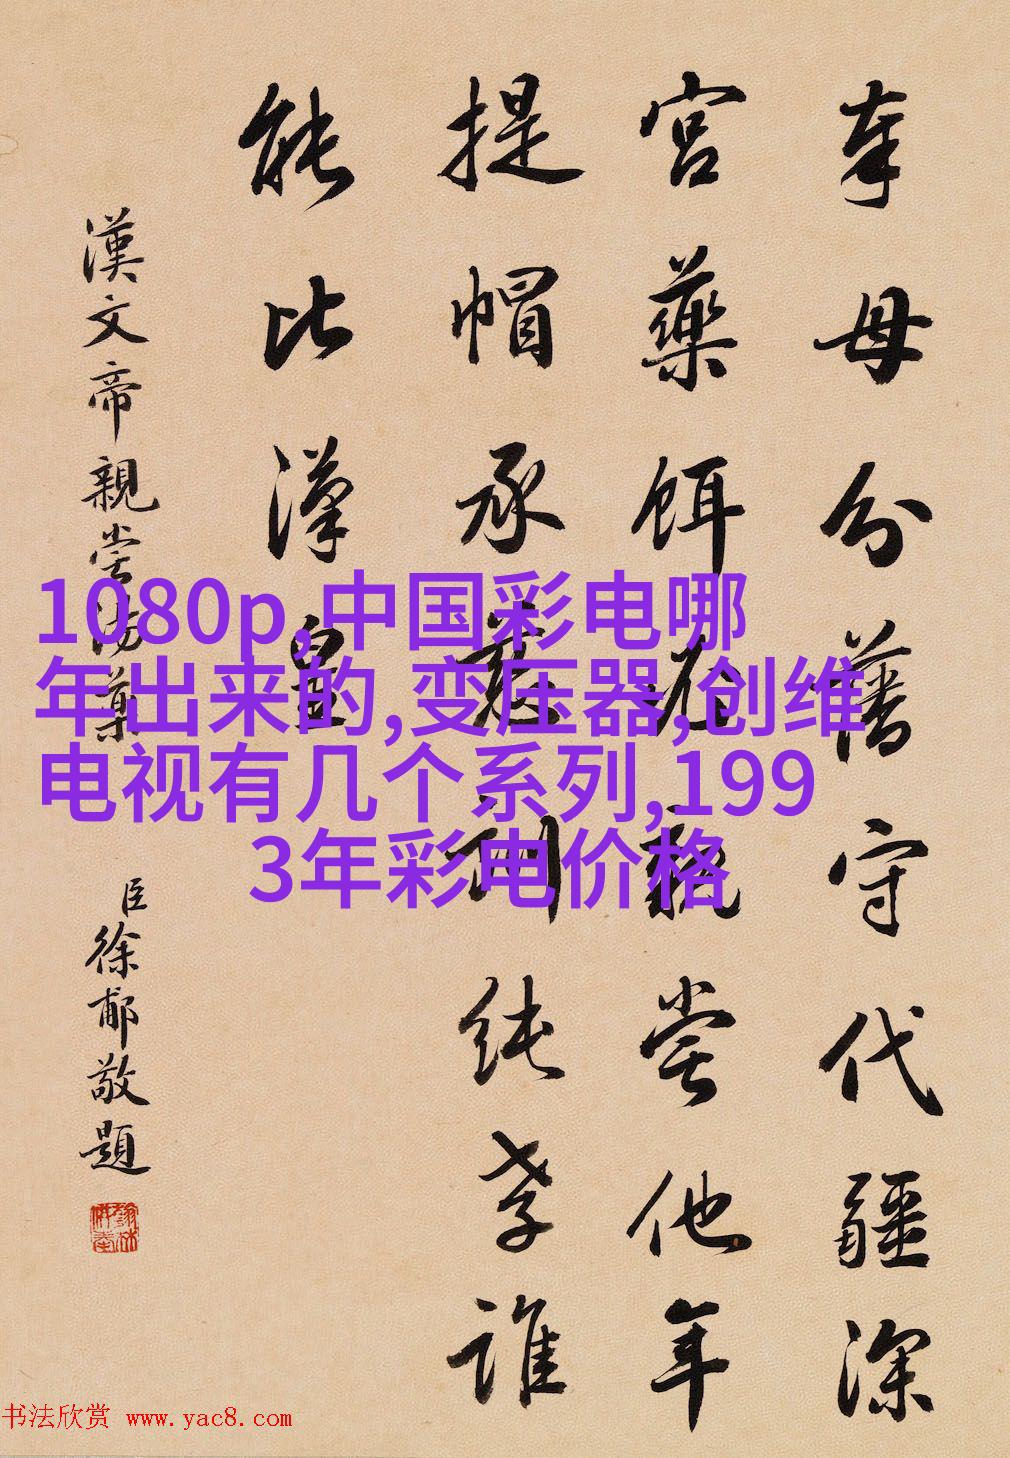 奉母分藩守代疆深
宮藥餌親嘗他年
提帽承慈訓純孝誰
能比漢皇
漢文帝親嘗湯藥
臣徐郙敬題
1080p,中国彩电哪
年出来的,变压器,创维
电视有几个系列,199
3年彩电价格
书法欣赏 www.yac8.com